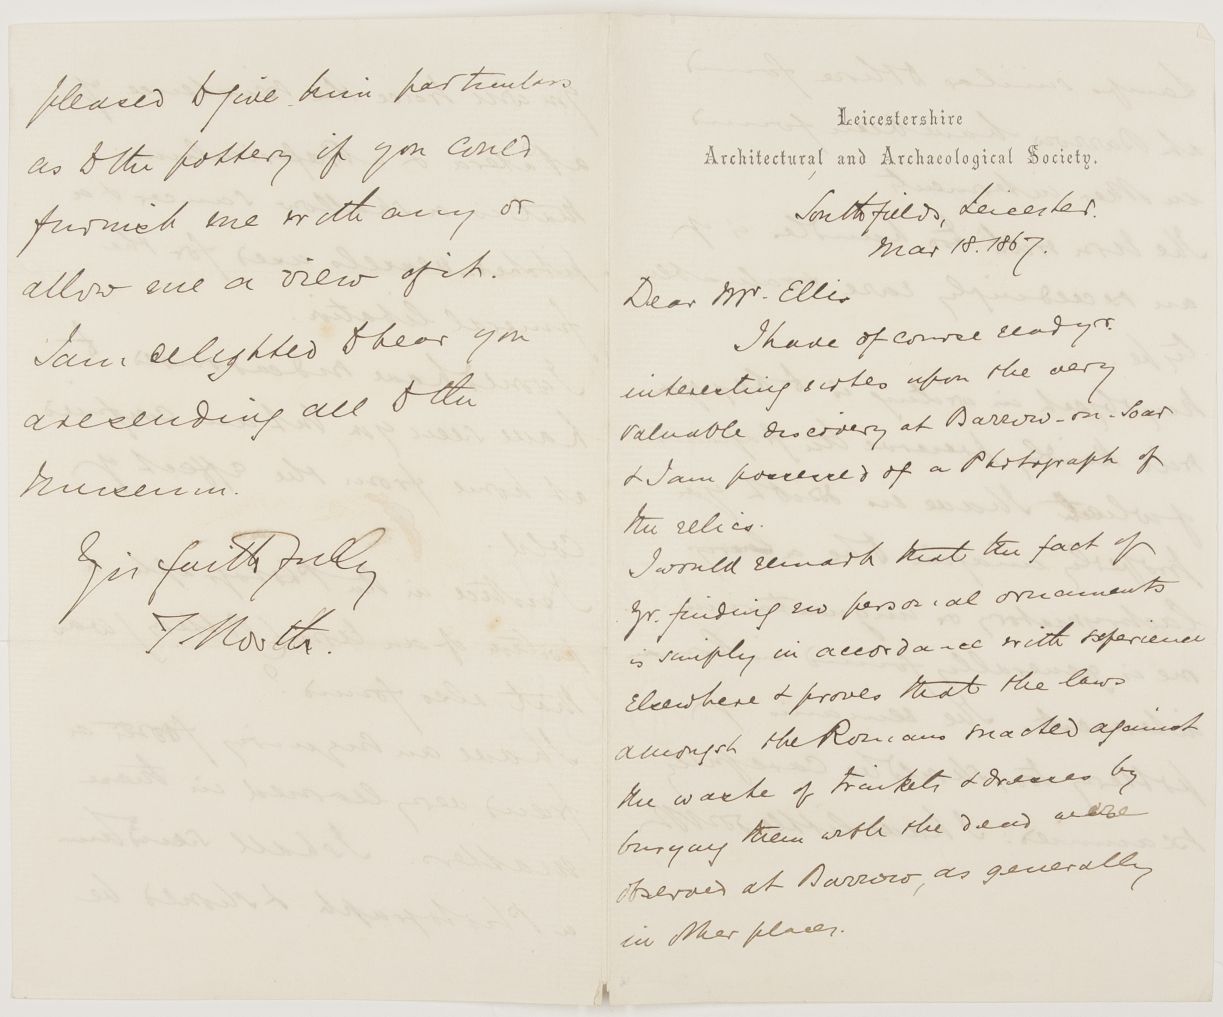 Leicestershire
Architectural and Archaeological Society.
Southfields, Leicester.
Mar 18. 1867.
Dear Mr. Ellis
I have of course read yr.
interesting notes upon the very
valuable discovery at Barrow-on-Soar
& I am possessed of a Photograph of
the relics.
I would remark that the fact of
yr. finding no personal ornaments
is simply in accordance with experience
elsewhere & proves that the laws
amongst the Romans enacted against
the waste of trinkets & dresses by
burying them with the dead were
observed at Barrow, as generally
in other places.
pleased to give him particulars
as to the pottery if you could
furnish me with any or
allow me a view of it.
I am delighted to hear you
are sending all to the
Museum.
Yrs faithfully
T North.